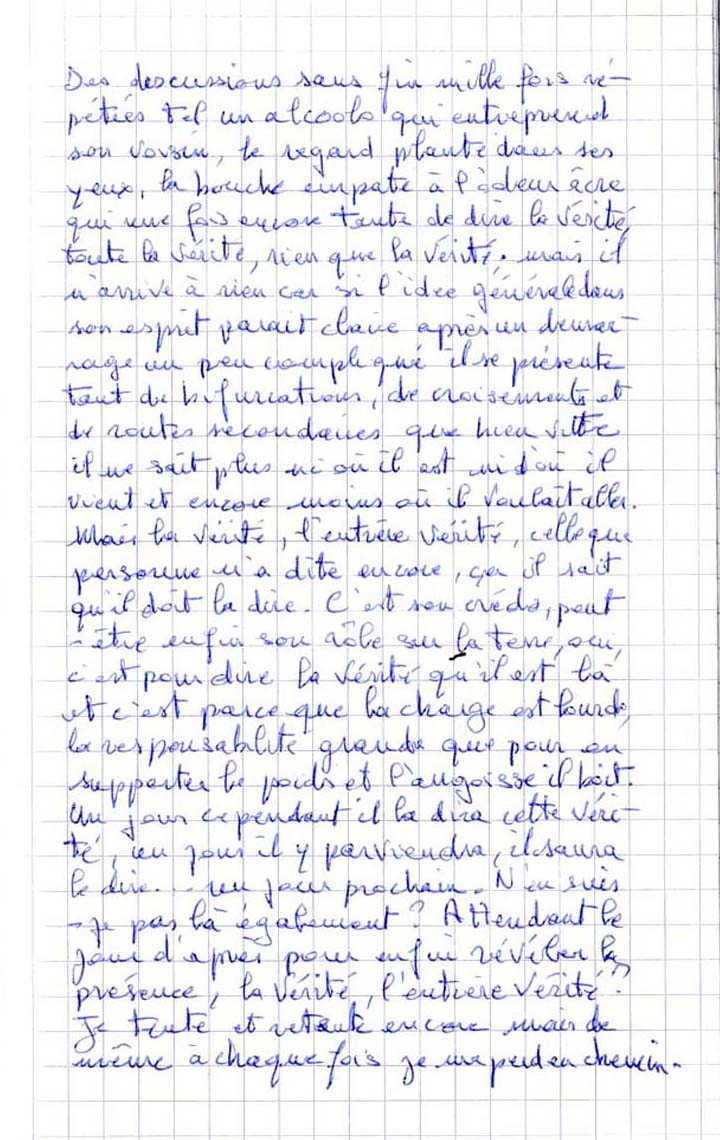 Des descussions sans fin mille fois ré-
pétées tel un alcoolo qui entreprend
son voisin, le regard planté dans ses
yeux, la bouche empaté à l'odeur âcre
qui une fois encore tente de dire la vérité,
toute la vérité, rien que la vérité. mais il
n'arrive à rien car si l'idée générale dans
son esprit parait claire après un demar-
rage un peu compliqué il se présente
tant de bifurcations, de croisements et
de routes secondaires que bien vitte
il ne sait plus ni où il est ni d'où il
vient et encore moins où il voulait aller.
Mais la vérité, l'entière vérité, celle que
personne n'a dite encore, ça il sait
qu'il doit la dire. C'est son crédo, peut
-être enfin son rôle sur la terre, oui,
c'est pour dire la vérité qu'il est là
et c'est parce que la charge est lourde,
la responsablité grande que pour en
supporter le poids et l'angoisse il boit.
Un jour cependant il la dira cette véri-
té, un jour il y parviendra, il saura
le dire... un jour prochain. N'en suis
-je pas là également ? Attendant le
jour d'après pour enfin révéler la
présence, la vérité, l'entière vérité ?
Je tente et retente encore mais de
même à chaque fois je me perd en chemin.